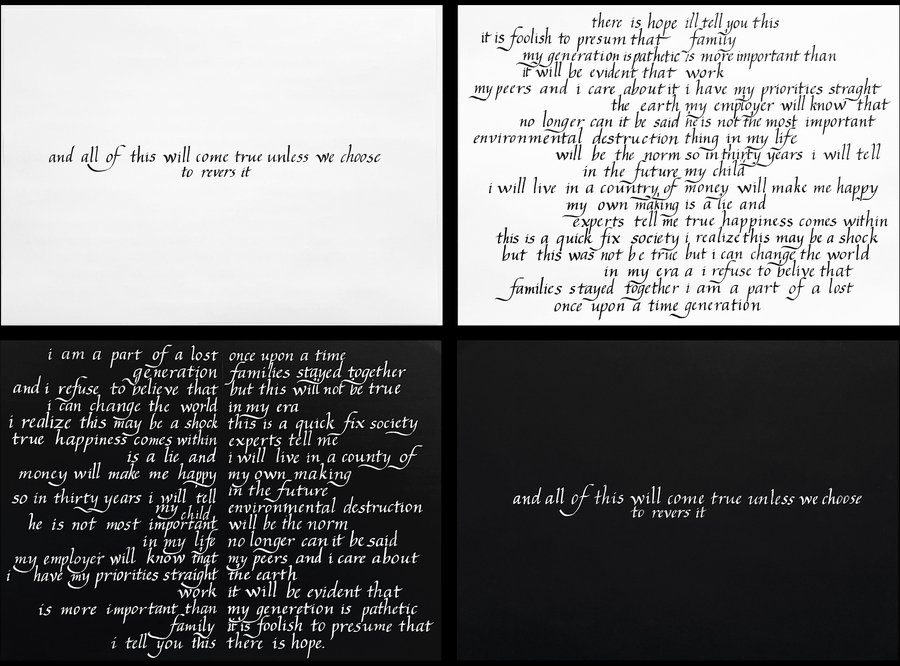 and all of this will come true unless we choose
to revers it
there is hope ill tell you this
it is foolish to presum that family
my generation is pathetic is more important than
it will be evident that work
my peers and i care about it i have my priorities straght
the earth my employer will know that
no longer can it be said he is not the most important
environmental destruction thing in my life
will be the norm so in thirty years i will tell
in the future my child
i will live in a country of money will make me happy
my own making is a lie and
experts tell me true happiness comes within
this is a quick fix society i realize this may be a shock
but this was not be true but i can change the world
in my era a i refuse to belive that
families stayed together i am a part of a lost
once upon a time generation
i am a part of a lost once upon a time
generation families stayed together
and i refuse to believe that but this will not be true
i can change the world in my era
i realize this may be a shock this is a quick fix society
true happiness comes within experts tell me
is a lie and i will live in a county of
money will make me happy my own making
so in thirty years i will tell in the future
my child environmental destruction
he is not most important will be the norm
in my life no longer can it be said
my employer will know that my peers and i care about
i have my priorities straight the earth
work it will be evident that
is more important than my generetion is pathetic
family it is foolish to presume that
i tell you this there is hope.
and all of this will come true unless we choose
to revers it